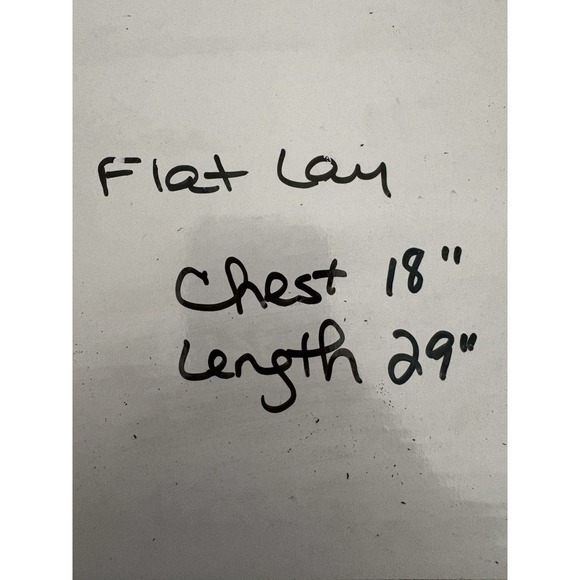 Flat Lay
Chest 18"
Length 29"